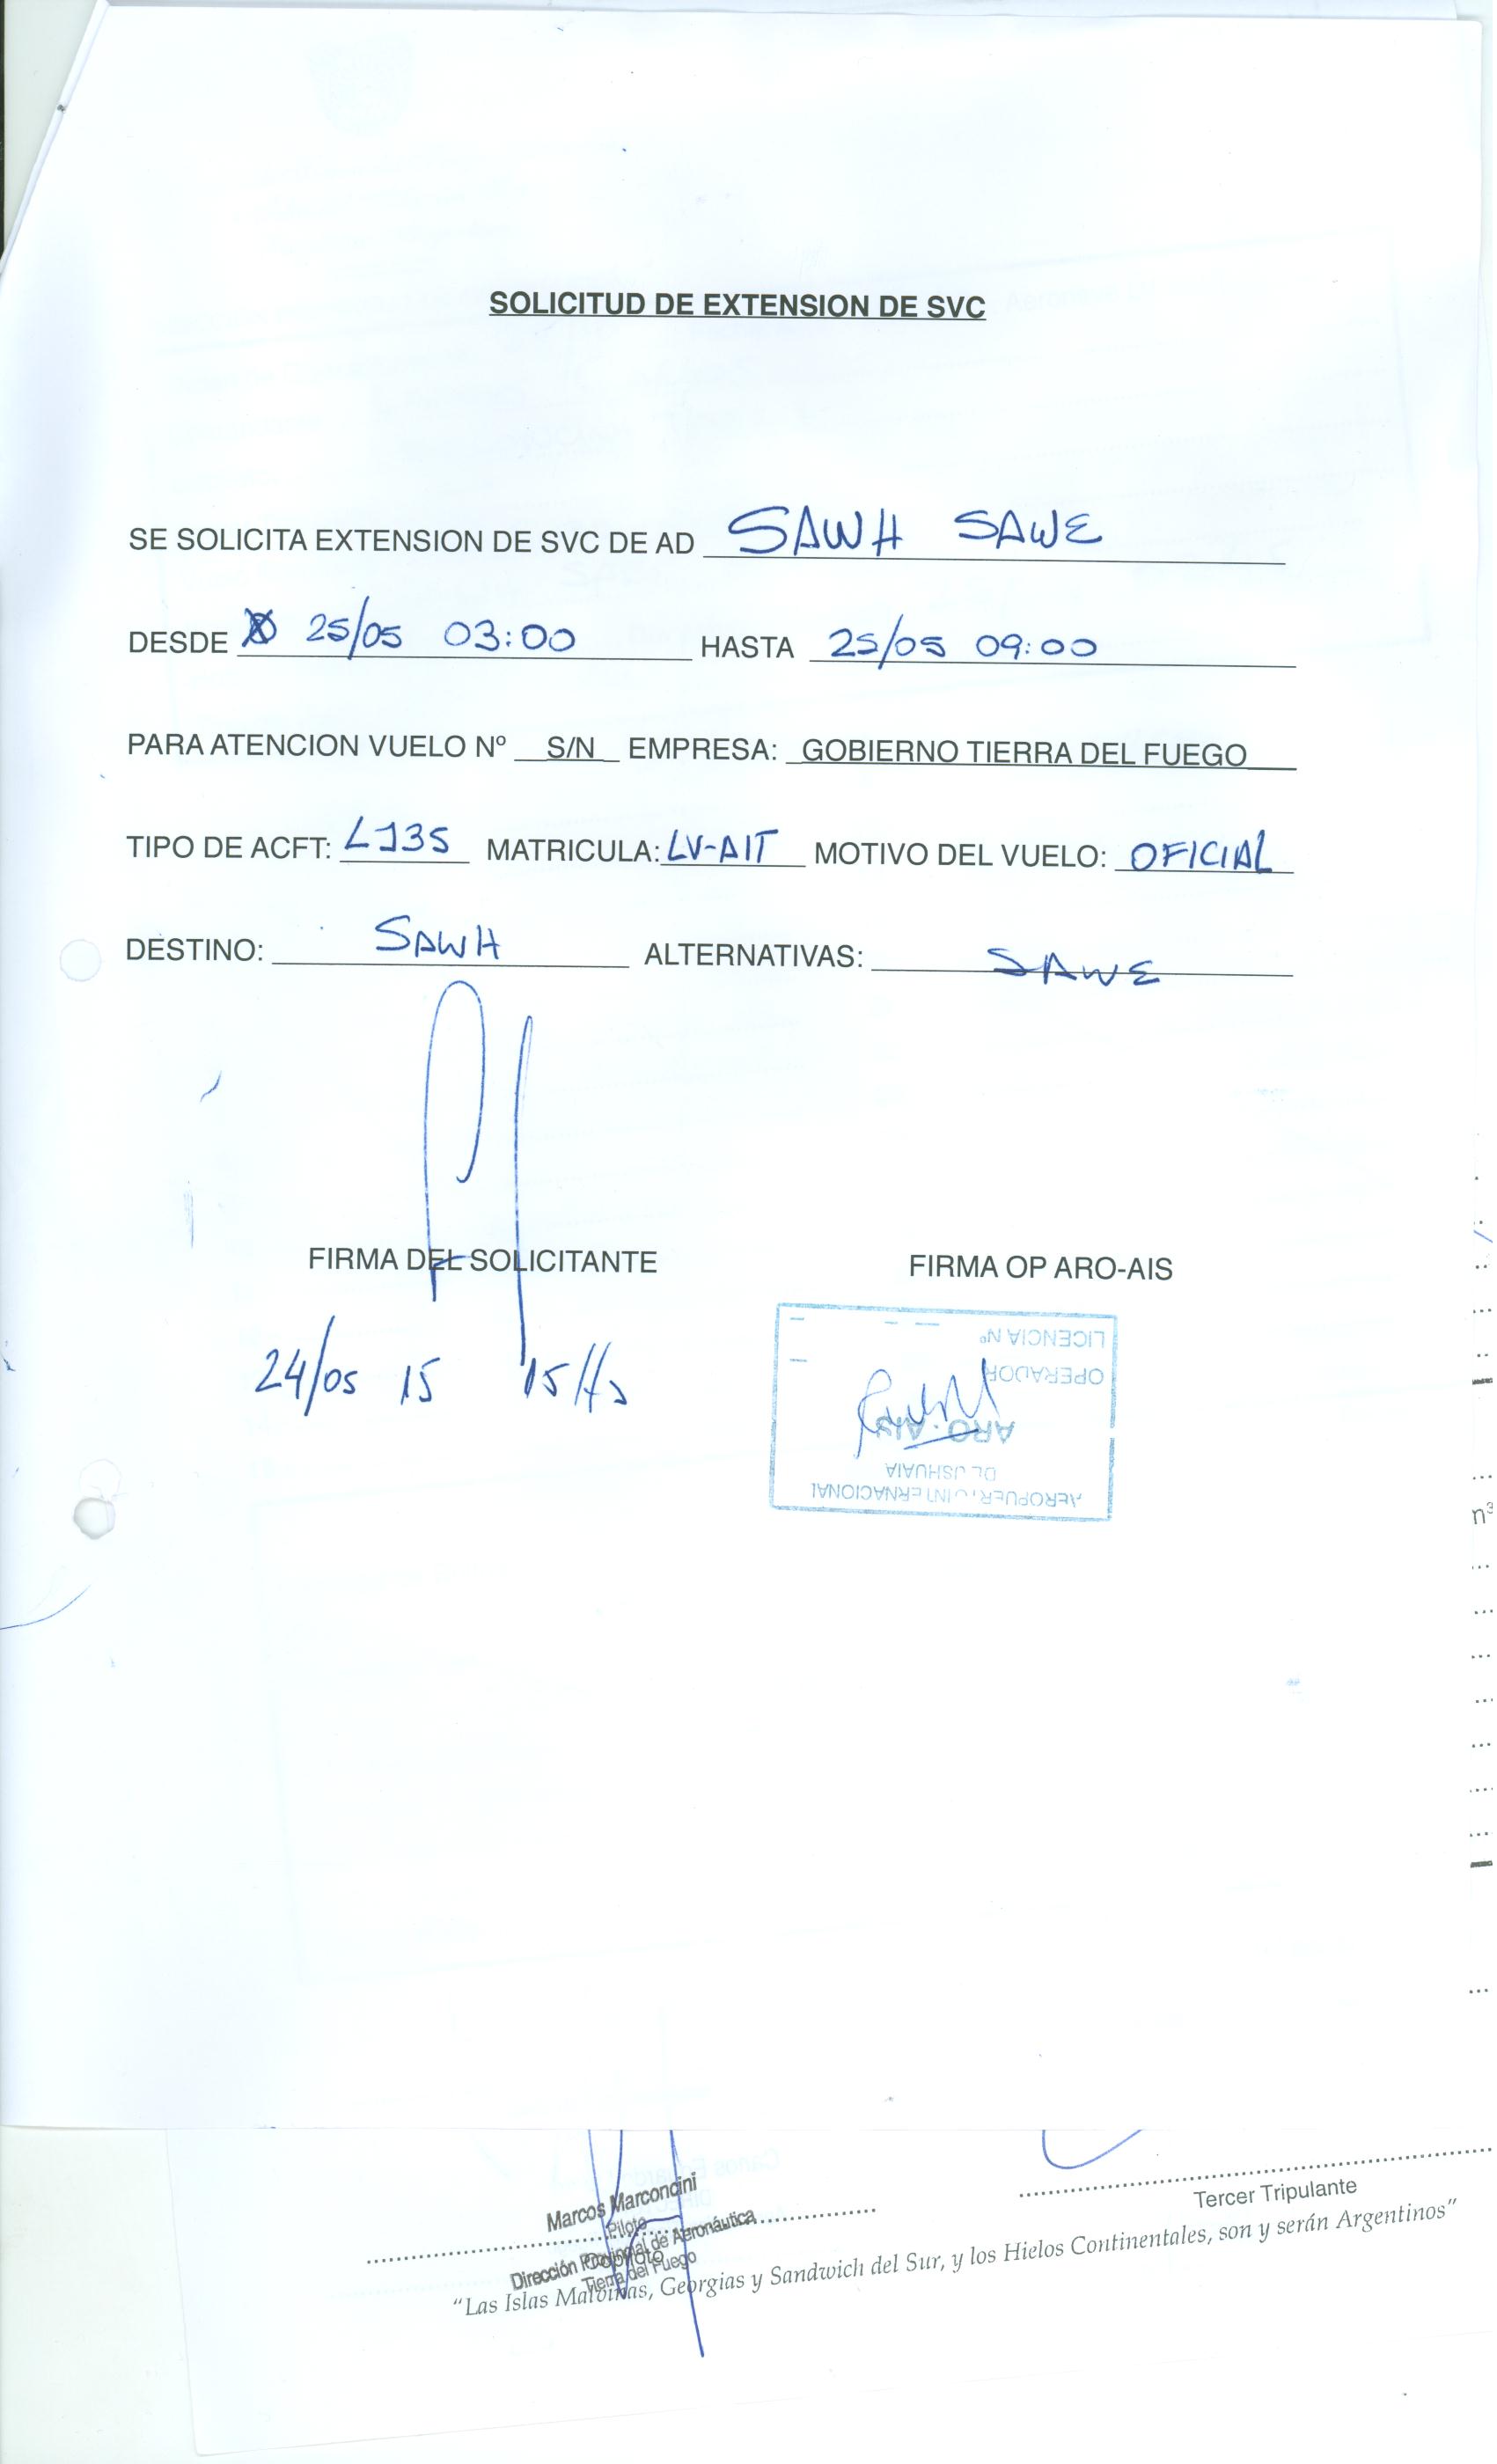 SOLICITUD DE EXTENSION DE SVC
SE SOLICITA EXTENSION DE SVC DE AD SAWH SAWE
DESDE 25/05 03:00 HASTA 25/05 09:00
PARA ATENCION VUELO Nº S/N EMPRESA: GOBIERNO TIERRA DEL FUEGO
TIPO DE ACFT: LJ35 MATRICULA: LV-AIT MOTIVO DEL VUELO: OFICIAL
DESTINO: SAWH ALTERNATIVAS: SAWE
FIRMA DEL SOLICITANTE FIRMA OP ARO-AIS
24/05 15 15Hs
LICENCIA Nº
OPERADOR
ARO-AIS
DE USHUAIA
AEROPUERTO INTERNACIONAL
n³
Marcos Marcondini
Piloto
Dirección Provincial de Aeronáutica
Copiloto
Tierra del Fuego
Tercer Tripulante
"Las Islas Malvinas, Georgias y Sandwich del Sur, y los Hielos Continentales, son y serán Argentinos"